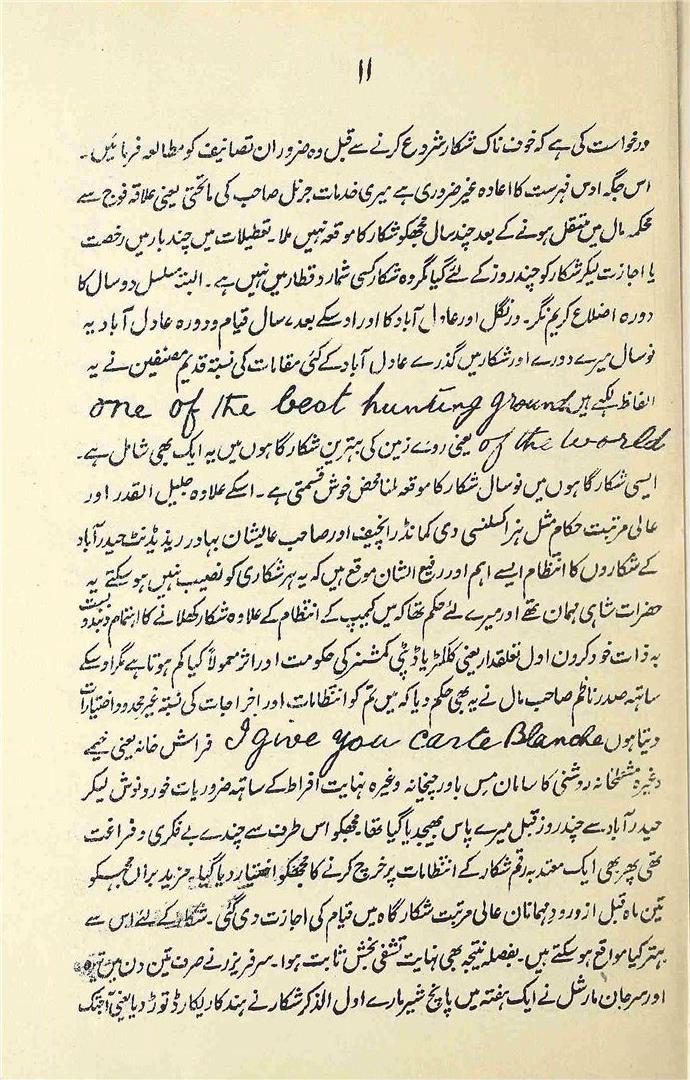 ۱۱
درخواست کی ہے کہ خوف ناک شکار شروع کرنے سے قبل وہ ضرور ان تصانیف کو مطالعہ فرمائیں۔
اس جگہ اوس فہرست کا اعادہ غیر ضروری ہے میری خدمات جرنل صاحب کی ماتحتی یعنی علاقہ فوج سے
محکمہ مال میں منتقل ہونے کے بعد چند سال مجھکو شکار کا موقعہ نہیں ملا۔ تعطیلات میں چند بار میں رخصت
یا اجازت لیکر شکار کو چند روز کے لئے گیا مگر وہ شکار کسی شمار و قطار میں نہیں ہے۔ البتہ مسلسل دو سال کا
دورہ اضلاع کریم نگر۔ ورنگل اور عادل آباد کا اور اوسکے بعد ۷ سال قیام و دورہ عادل آباد یہ
نو سال میرے دورے اور شکار میں گذرے عادل آباد کے کئی مقامات کی نسبتہ قدیم مصنفین نے یہ
الفاظ لکھے ہیں one of the best hunting ground
of the world یعنی روے زمین کی بہترین شکار گاہوں میں یہ ایک بھی شامل ہے۔
ایسی شکار گاہوں میں نو سال شکار کا موقعہ ملنا محض خوش قسمتی ہے۔ اسکے علاوہ جلیل القدر اور
عالی مرتبت حکام مثل ہز اکسلنسی دی کمانڈر انچیف اور صاحب عالیشان بہادر ریذیڈنٹ حیدرآباد
کے شکاروں کا انتظام ایسے اہم اور رفیع الشان موقع ہیں کہ یہ ہر شکاری کو نصیب نہیں ہو سکتے یہ
حضرات شاہی مہمان تھے اور میرے لئے حکم تھا کہ میں کیمپ کے انتظام کے علاوہ شکار کھلانے کا اہتمام و بندوبست
بہ ذات خود کروں اول تعلقدار یعنی کلکٹر یا ڈپٹی کمشنر کی حکومت اور اثر معمولاً کیا کم ہوتا ہے مگر اوسکے
ساتھ صدر ناظم صاحب مال نے یہ بھی حکم دیا کہ میں تم کو انتظامات اور اخراجات کی نسبتہ غیر محدود اختیارات
دیتا ہوں I give you carte Blanche فراش خانہ یعنی خیمے
وغیرہ مشعلخانہ روشنی کا سامان مس باورچیخانہ وغیرہ نہایت افراط کے ساتھ ضروریات خورونوش لیکر
حیدرآباد سے چند روز قبل میرے پاس بھیجدیا گیا تھا۔ مجھکو اس طرف سے چندے بے فکری و فراغت
تھی پھر بھی ایک معتدبہ رقم شکار کے انتظامات پر خرچ کرنے کا مجھکو اختیار دیا گیا۔ مزید براں مجھکو
تین ماہ قبل از ورود مہمانان عالی مرتبت شکار گاہ میں قیام کی اجازت دی گئی۔ شکار کے لئے اس سے
بہتر کیا مواقع ہو سکتے ہیں۔ بفضلہ نتیجہ بھی نہایت تشفی بخش ثابت ہوا۔ سر فریزر نے صرف تین دن میں
اور سر جان مارشل نے ایک ہفتہ میں پانچ شیر مارے اول الذکر شکار نے ہند کا ریکارڈ توڑ دیا یعنی آجتک